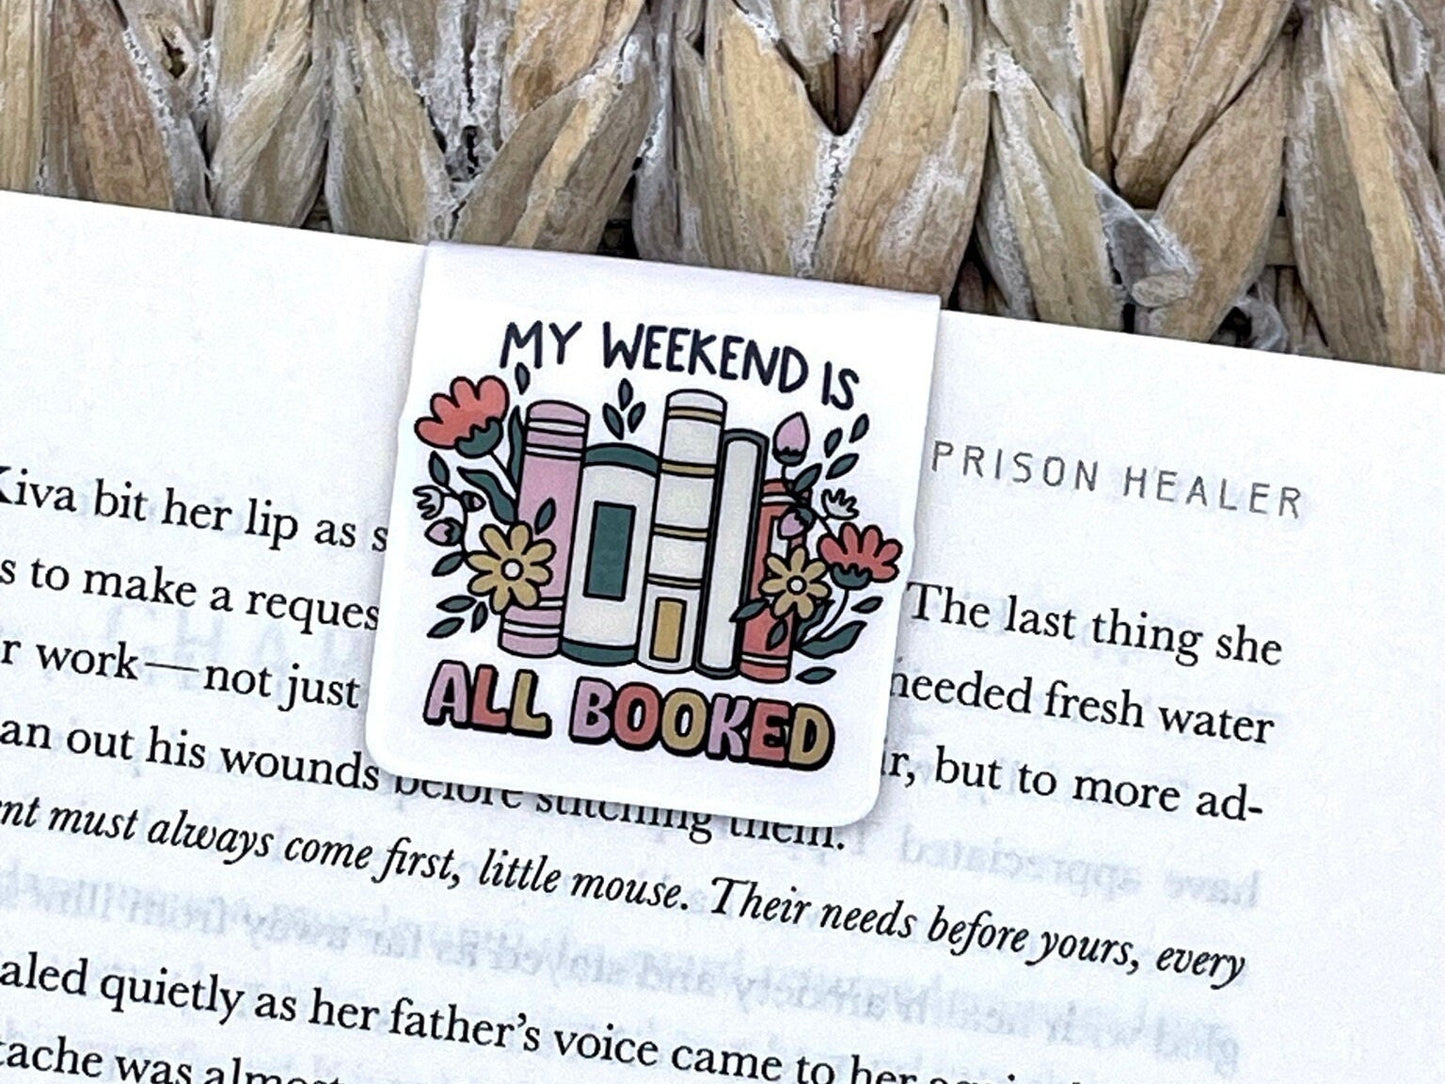 MY WEEKEND IS
ALL BOOKED
PRISON HEALER
Kiva bit her lip as
The last thing she
to make a
needed fresh water
work—not just
but to more ad-
out his wounds before stitching them.
must always come first, little mouse. Their needs before yours, every
quietly as her father's voice came to her
was almost